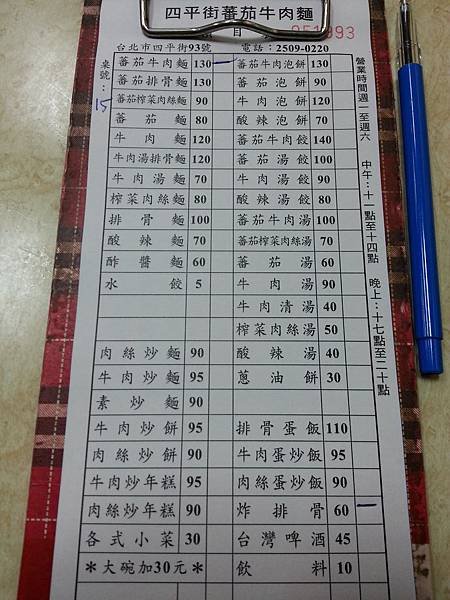 四平街蕃茄牛肉麵
目
051993
台北市四平街93號 電話：2509-0220
桌號：
15
蕃茄牛肉麵 130 一 蕃茄牛肉泡餅 130
蕃茄排骨麵 130 蕃茄泡餅 90
蕃茄榨菜肉絲麵 90 牛肉泡餅 120
蕃茄麵 80 酸辣泡餅 70
牛肉麵 120 蕃茄牛肉餃 140
牛肉湯排骨麵 120 蕃茄湯餃 100
牛肉湯麵 70 牛肉湯餃 90
榨菜肉絲麵 80 酸辣湯餃 80
排骨麵 100 蕃茄牛肉湯 100
酸辣麵 70 蕃茄榨菜肉絲湯 70
酢醬麵 60 蕃茄湯 60
水餃 5 牛肉湯 90
牛肉清湯 40
榨菜肉絲湯 50
肉絲炒麵 90 酸辣湯 40
牛肉炒麵 95 蔥油餅 30
素炒麵 90
牛肉炒餅 95 排骨蛋飯 110
肉絲炒餅 90 牛肉蛋炒飯 95
牛肉炒年糕 95 肉絲蛋炒飯 90
肉絲炒年糕 90 炸排骨 60 一
各式小菜 30 台灣啤酒 45
＊大碗加30元＊ 飲料 10
營業時間週一至週六 中午：十一點至十四點 晚上：十七點至二十點